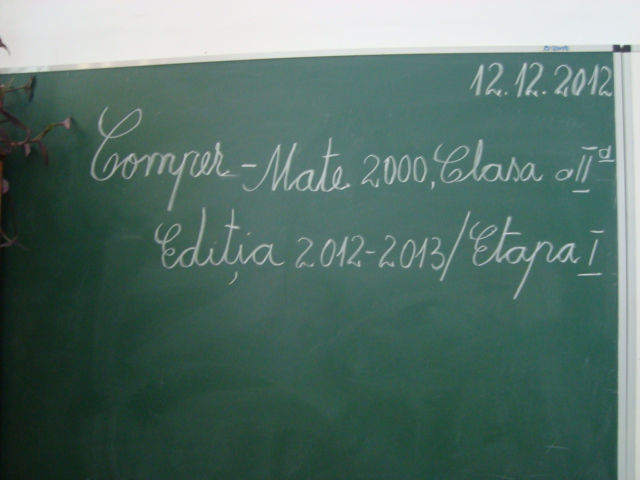 12.12.2012
Comper-Mate 2000, Clasa a II a
Ediția 2012-2013/Etapa I